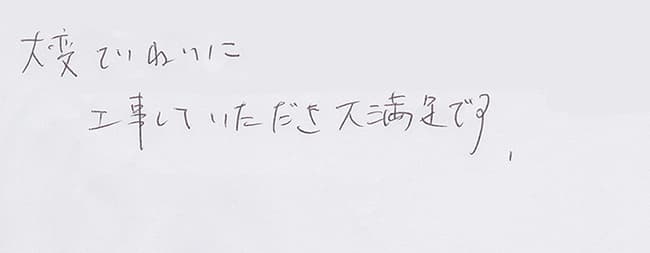 大変ていねいに
工事していただき大満足です。